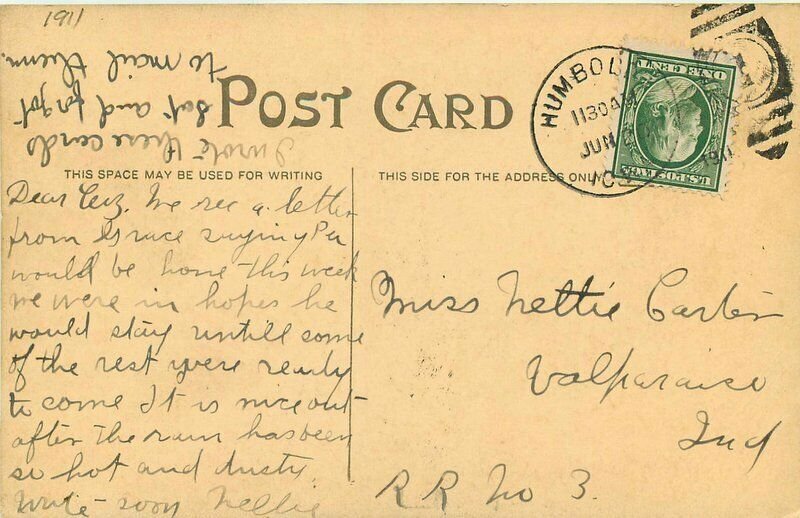 1911
I wrote these cards
Sat and forgot
to mail them.
POST CARD
THIS SPACE MAY BE USED FOR WRITING
THIS SIDE FOR THE ADDRESS ONLY
HUMBOL
1130A
JUN
1911
ONE CENT
U.S. POSTAGE
Dear Coz. We rec a letter
from Grace saying
would be home this week
we were in hopes he
would stay untill some
of the rest were ready
to come It is nice out
after the rain has been
so hot and dusty.
Write soon Nellie
Miss Nettie Carter
Valparaiso
Ind
RR No 3.